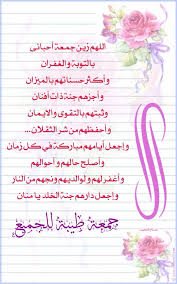 اللهم زين جمعة أحبابى
بالتوبة والغفران
وأكثر حسناتهم بالميزان
وأجزهم جنة ذات أفنان
وثبتهم بالتقوى والايمان
وأحفظهم من شر الثقلان ...
وإجعل أيامهم مباركة في كل زمان
وأصلح حالهم وأحوالهم
وأغفر لهم ولوالديهم ونجهم من النار
وإجعل دارهم جنة الخلد يا منان
جمعة طيبة للجميع